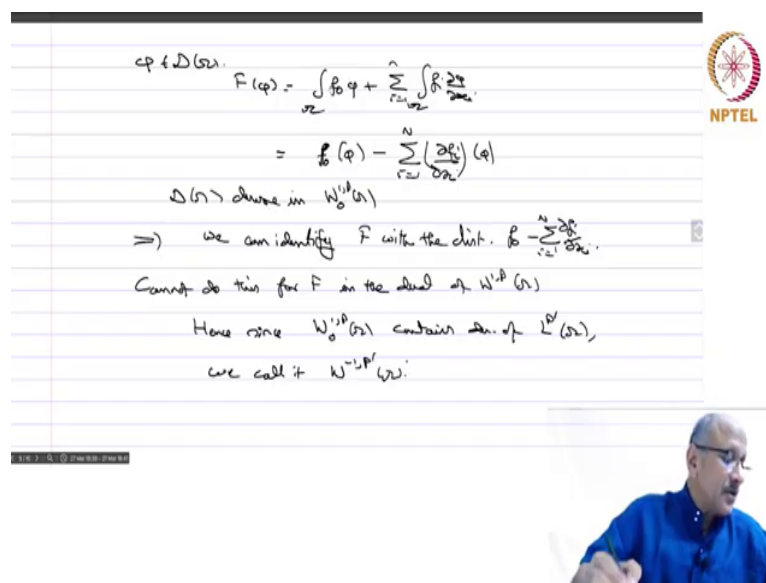 φ ∈ D(Ω).
F(φ) = ∫_Ω f₀φ + Σ_{i=1}^{n} ∫_Ω f_i ∂φ/∂x_i.
= f₀(φ) − Σ_{i=1}^{N} (∂f_i/∂x_i)(φ)
D(Ω) dense in W₀^{1,p}(Ω)
⇒) we can identify F with the dist. f₀ − Σ_{i=1}^{N} ∂f_i/∂x_i.
Cannot do this for F in the dual of W^{1,p}(Ω)
Hence since W₀^{1,p}(Ω) contains der. of L^{p'}(Ω),
we call it W^{-1,p'}(Ω).
NPTEL